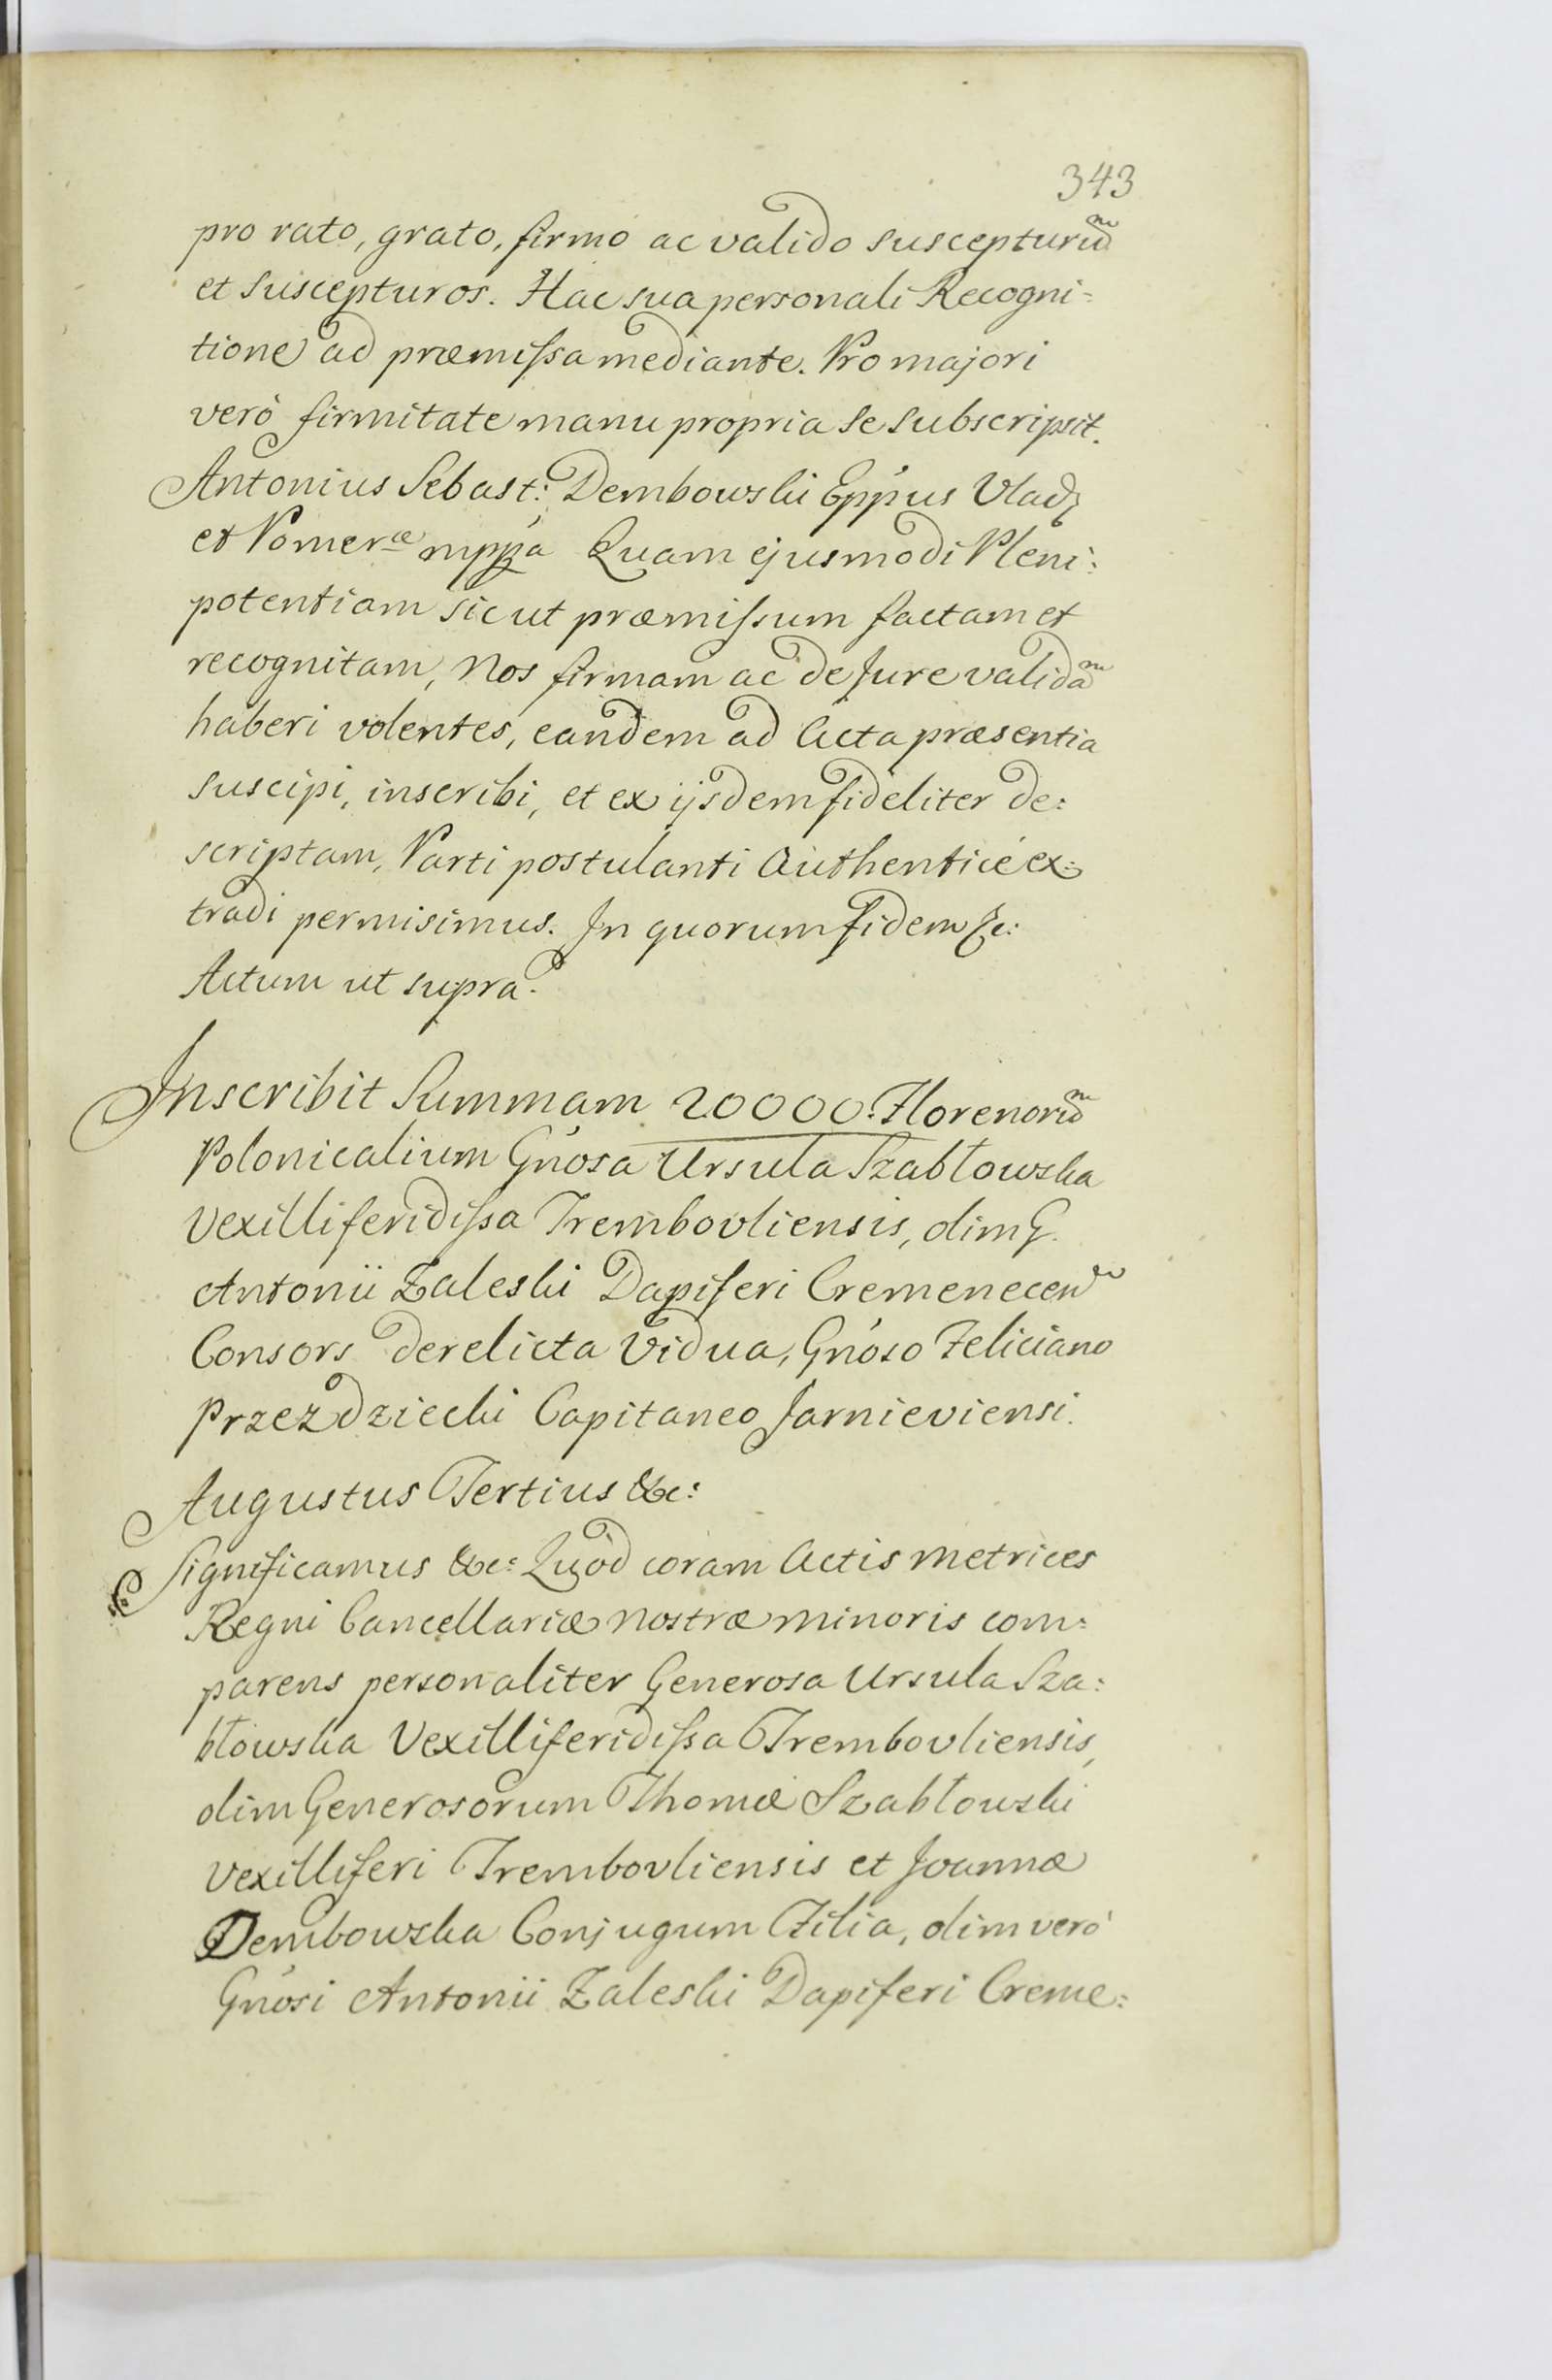 343
pro rato, grato, firmo ac valido suscepturũ
et suscepturos. Hac sua personali Recogni=
tione ad præmissa mediante. Pro majori
verò firmitate manu propria se subscripsit.
Antonius Sebast: Dembowski Eppus Vlad:
et Pomer:æ mppa Quam ejusmodi Pleni:
potentiam sicut præmissum factam et
recognitam, Nos firmam ac de Jure validã
haberi volentes, eandem ad Acta præsentia
suscipi, inscribi, et ex ijsdem fideliter de:
scriptam, Parti postulanti Authenticè ex:
tradi permisimus. In quorum fidem &c:
Actum ut supra.
Inscribit Summam 20000. Florenorũ
Polonicalium Gnósa Ursula Szabłowska
Vexilliferidissa Trembovliensis, olim G.
Antonii Zaleski Dapiferi Cremenecen
Consors derelicta Vidua, Gnóso Feliciano
Przezdziecki Capitaneo Jarnieviensi.
Augustus Tertius &c:
Significamus &c: Quòd coram Actis Metrices
Regni Cancellariæ nostræ minoris com:
parens personaliter Generosa Ursula Sza:
błowska Vexilliferidissa Trembovliensis,
olim Generosorum Thomæ Szabłowski
Vexilliferi Trembovliensis et Joannæ
Dembowska Conjugum Filia, olim verò
Gnósi Antonii Zaleski Dapiferi Creme: